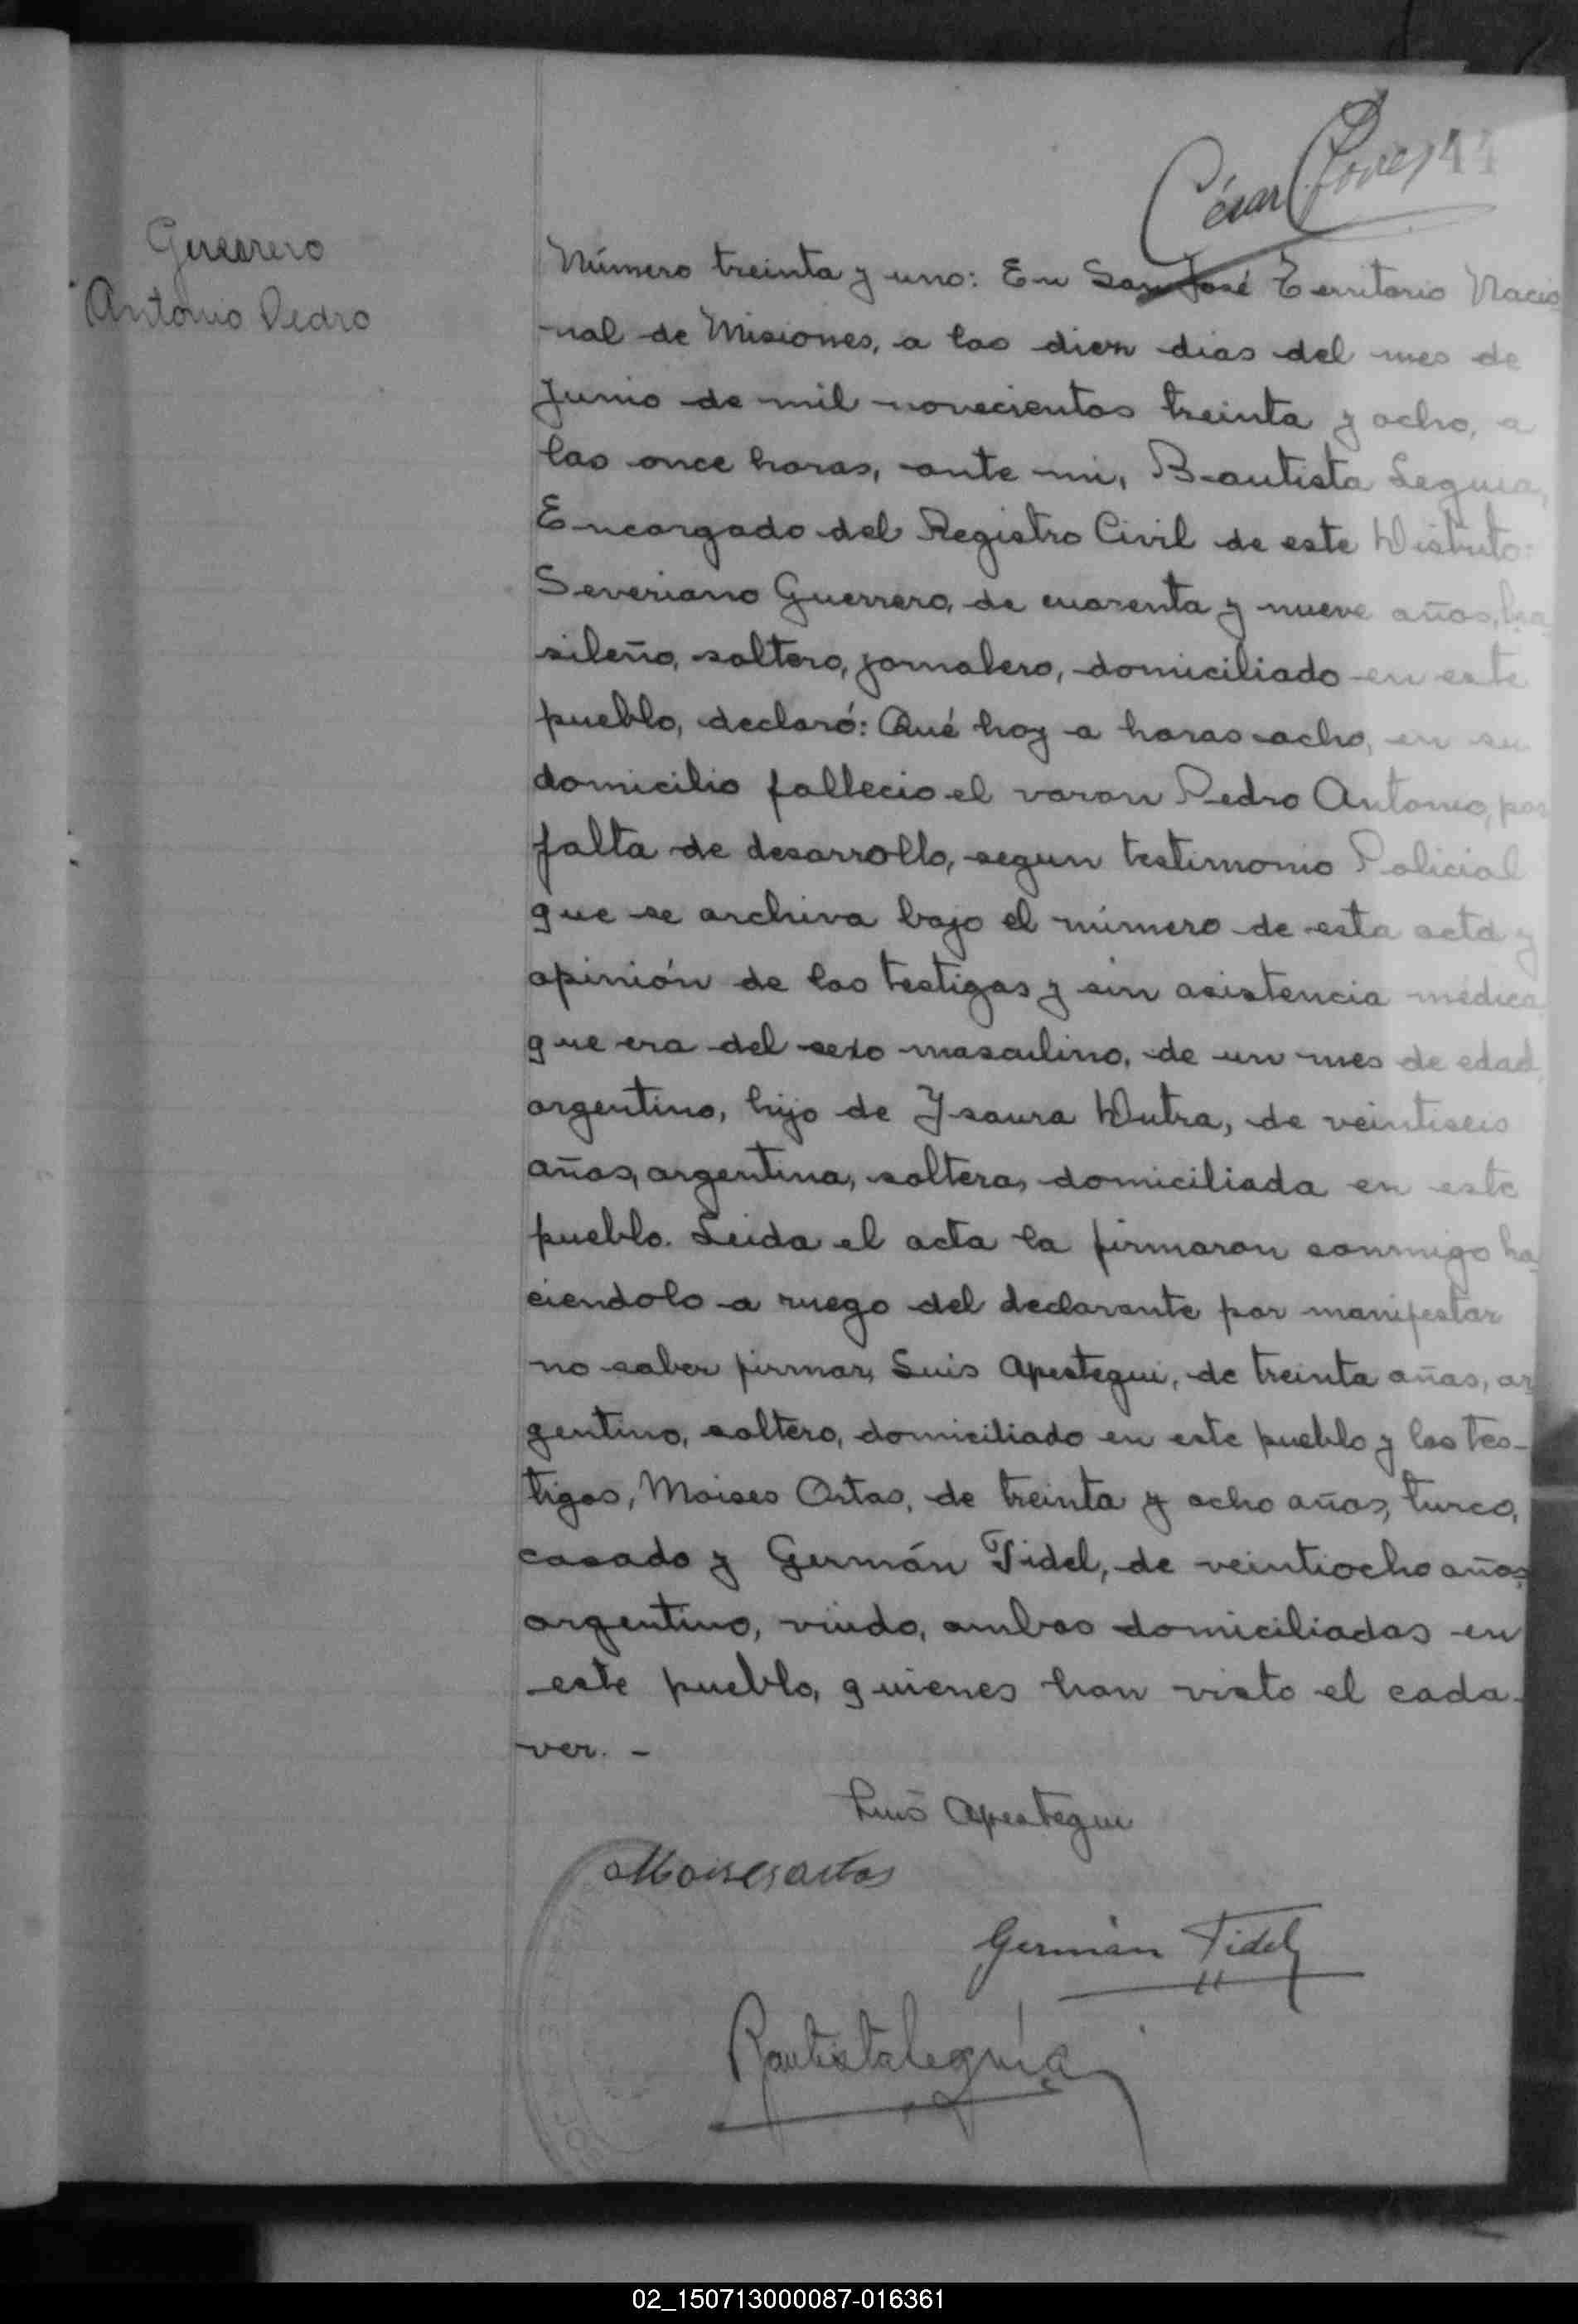 César
44
Guerrero
Antonio Pedro
Número treinta y uno: En San José Territorio Nacio
nal de Misiones, a los diez dias del mes de
Junio de mil novecientos treinta y ocho, a
las once horas, ante mi, Bautista Leguia,
Encargado del Registro Civil de este Distrito:
Severiano Guerrero, de cuarenta y nueve años, bra
sileño, soltero, jornalero, domiciliado en este
pueblo, declaró: Qué hoy a horas ocho, en su
domicilio fallecio el varon Pedro Antonio, por
falta de desarrollo, segun testimonio Policial
que se archiva bajo el número de esta acta y
opinión de los testigos y sin asistencia médica
que era del sexo masculino, de un mes de edad,
argentino, hijo de Ysaura Dutra, de veintiseis
años, argentina, soltera, domiciliada en este
pueblo. Leida el acta la firmaron conmigo ha
ciendolo a ruego del declarante por manifestar
no saber firmar, Luis Apestegui, de treinta años, ar
gentino, soltero, domiciliado en este pueblo y los tes-
tigos, Moises Ortas, de treinta y ocho años, turco,
casado y Germán Fidel, de veintiocho años,
argentino, viudo, ambos domiciliados en
este pueblo, quienes han visto el cada-
ver. -
Luis Apestegui
Moises Ortas
Germán Fidel
Bautista Leguía
02_150713000087-016361